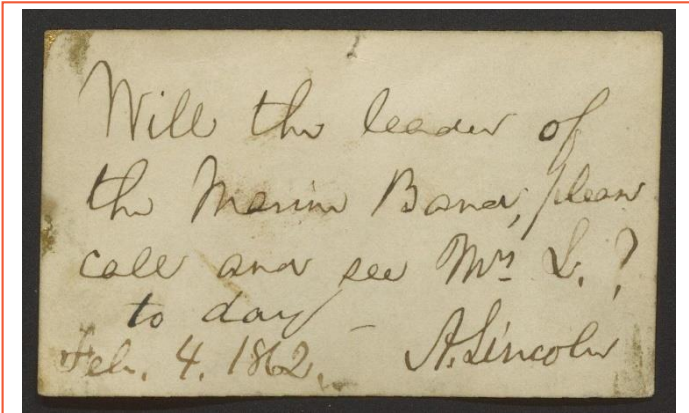 Will the leader of
the Marine Band, please
call and see Mrs L.?
to day —
Feb. 4. 1862. A. Lincoln